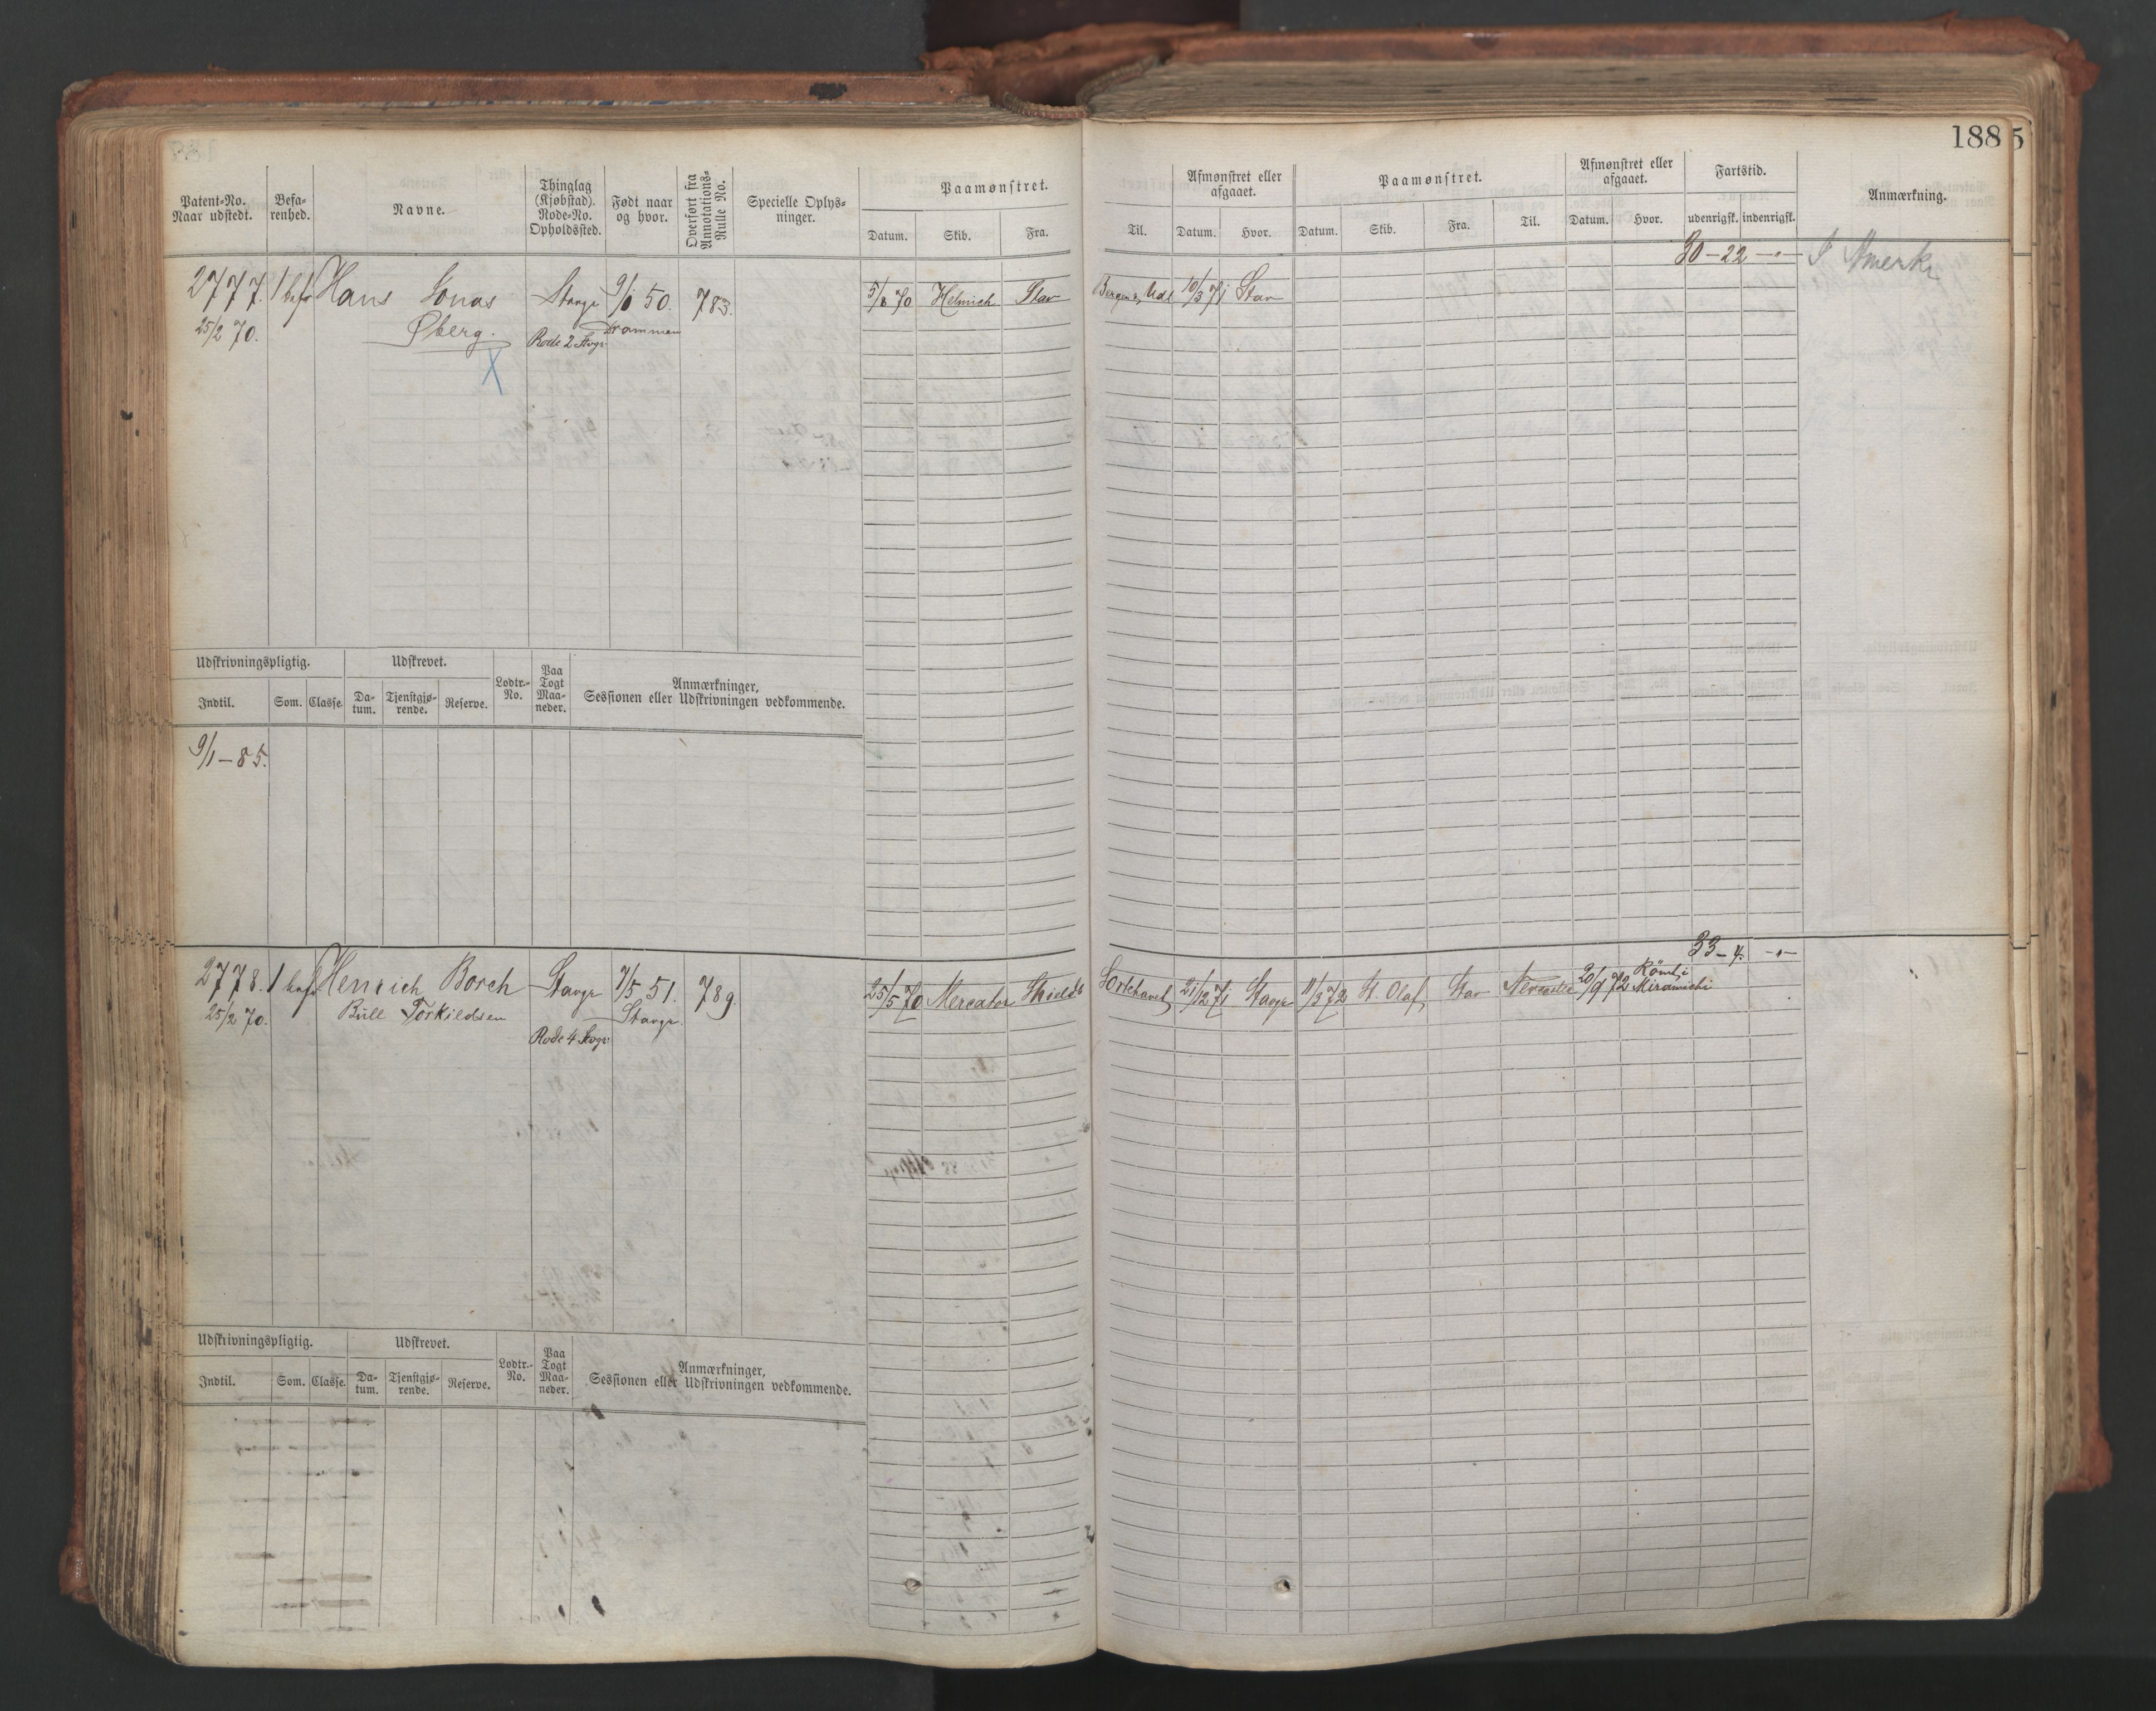 188 5
Patent-No. Naar udstedt.
Befarenhed.
Navne.
Thinglag (Kjøbstad). Rode-No. Opholdssted.
Født naar og hvor.
Overført fra Annotations-Rulle No.
Specielle Oplysninger.
Paamønstret.
Datum. Skib. Fra.
Til.
Afmønstret eller afgaaet.
Datum. Hvor.
Paamønstret.
Datum. Skib. Fra. Til.
Afmønstret eller afgaaet.
Datum. Hvor.
Fartstid.
udenrigsk. indenrigsk.
Anmærkning.
30-22 -"-
2777. 1 bef Hans Jonas Stavgr 9/1 50. 783. 5/8 70 Helmich Stav 10/3 71 Stav
25/2 70. Øberg. Rode 2 Stvgr Drammen
X
Udskrivningspligtig. Udskrevet. Lodtr.-No. Paa Togt Maaneder. Anmærkninger, Sessionen eller Udskrivningen vedkommende.
Indtil. Som. Classe. Datum. Tjenstgjørende. Reserve.
9/1-85.
33-4. -"-
2778. 1 bef Henrich Borch Stavgr 7/5 51. 789. 25/5 70 Mercator Shields 21/12 71 Stavgr 11/3 72 St. Olaf Stav Newcastle 20/9 72 Rømt i Miramichi
25/2 70. Bull Torkildsen Rode 4 Stvgr Stavgr.
Udskrivningspligtig. Udskrevet. Lodtr.-No. Paa Togt Maaneder. Anmærkninger, Sessionen eller Udskrivningen vedkommende.
Indtil. Som. Classe. Datum. Tjenstgjørende. Reserve.